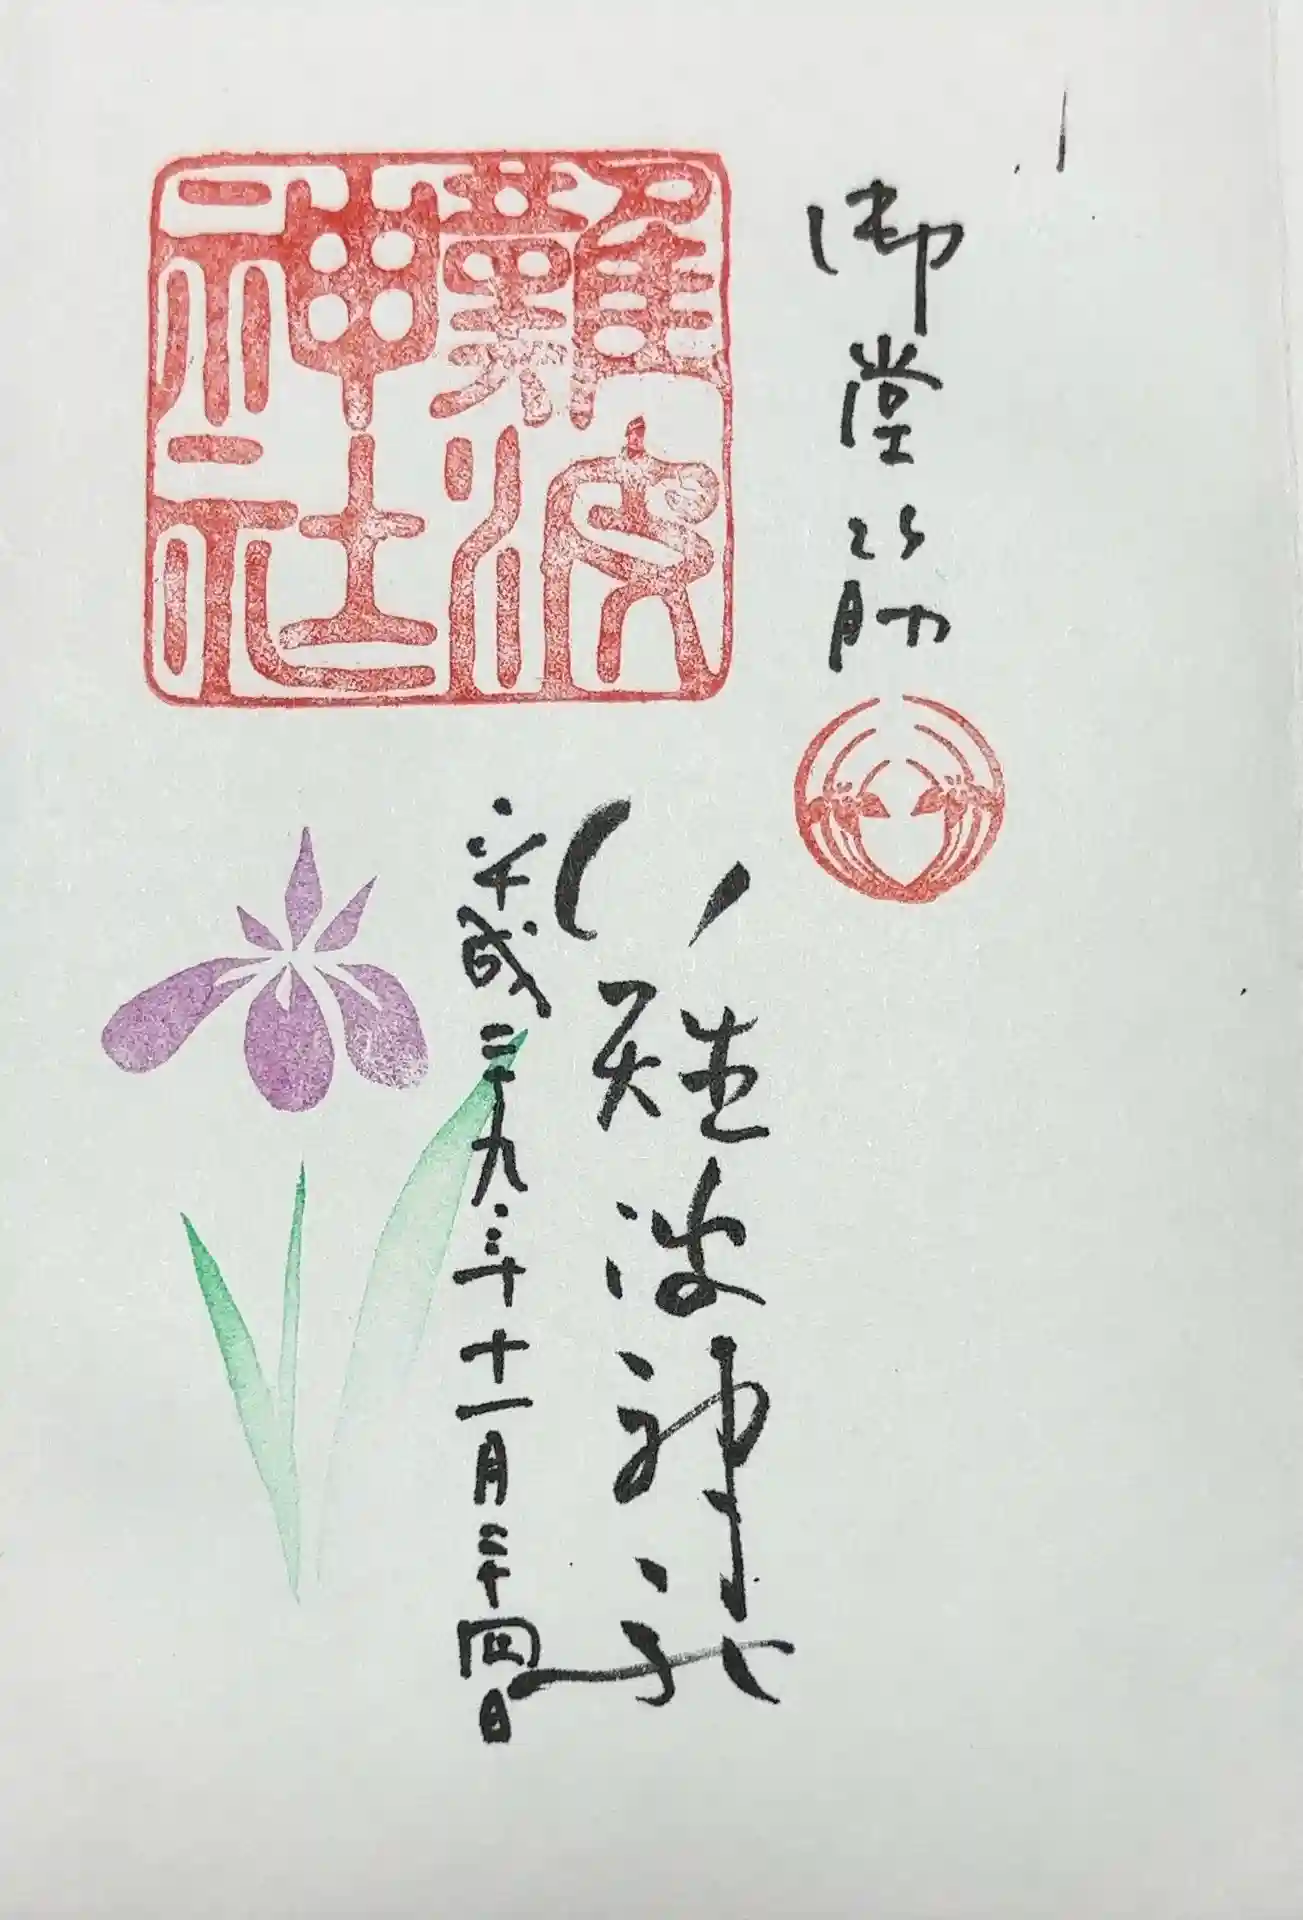 御堂筋
難波
神社
難波神社
平成二十九年十一月二十四日